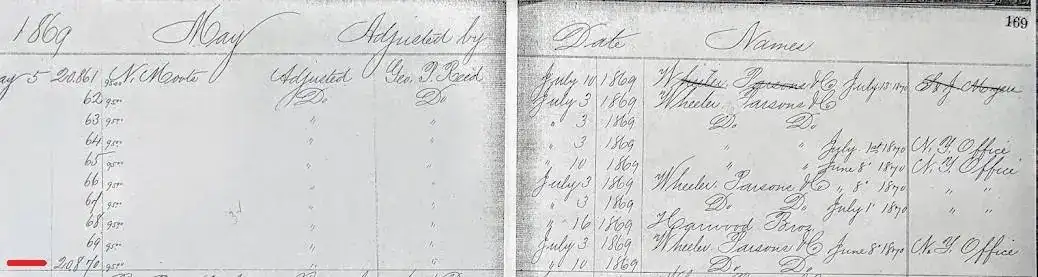 169
1869 May Adjusted by Date Names
ay 5 20.861 9500 N. Moore Adjusted Geo. P. Reed July 10 1869 Wheeler Parsons & C July 13 1870
62 9500 Do Do July 3 1869 Wheeler, Parsons & C
63 9500 " " " 3 1869 Do Do
64 9500 " " " 3 1869 " " July 1st 1870 N. Y. Office
65 9500 " " " 10 1869 " " June 8 1870 N. Y. Office
66 9500 " " July 3 1869 Wheeler, Parsons & C " 8 1870 " "
67 9500 " " " 3 1869 Do Do July 1 1870 " "
68 9500 " " " 16 1869 Harwood Bros
69 9500 " " July 3 1869 Wheeler, Parsons & C June 8 1870 N. Y. Office
20.870 9500 " " " 10 1869 Do Do